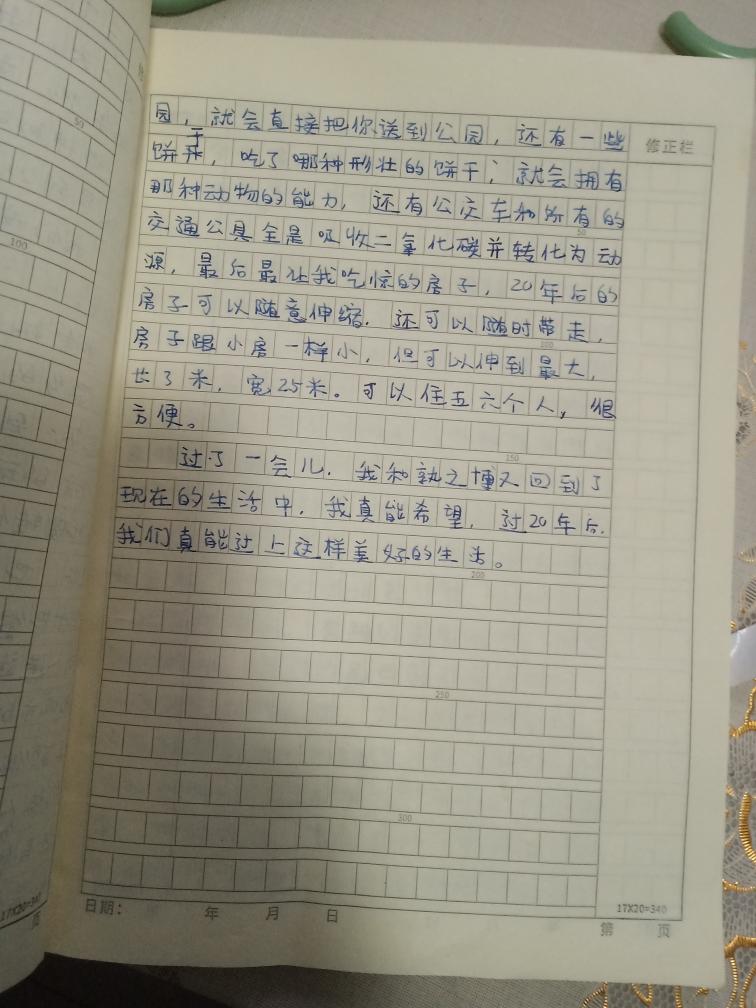 园，就会直接把你送到公园，还有一些
修正栏
饼干，吃了哪种形壮的饼干，就会拥有
那种动物的能力，还有公交车和所有的
50
交通公具全是吸收二氧化碳并转化为动
源，最后最让我吃惊的房子，20年后的
房子可以随意伸缩，还可以随时带走，
100
房子跟小房一样小，但可以伸到最大，
长了米，宽25米。可以住五六个人，很
方便。
150
过了一会儿，我和又回到了
现在的生活中，我真能希望，过20年后，
我们真能过上这样美好的生活。
200
250
300
17X20=340
日期： 年 月 日
第 页
50
100
17X20=340
页